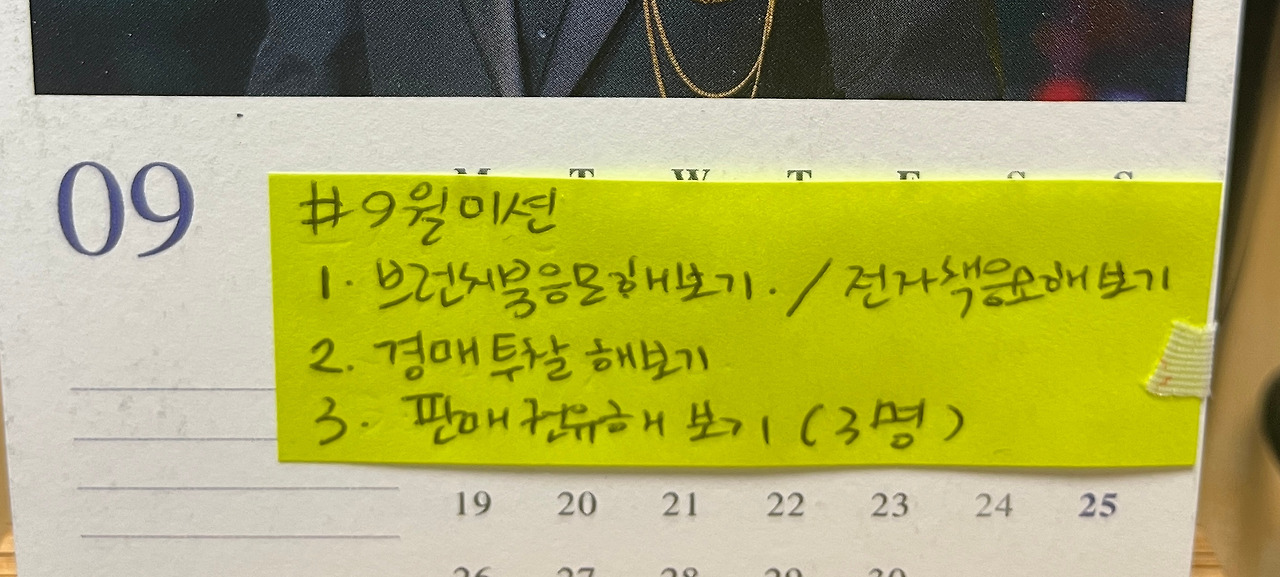 09
M T W T F S S
#9월 미션
1. 브런치북응모해보기. / 전자책응모해보기
2. 경매 투찰 해보기
3. 판매 권유해 보기 (3명)
19 20 21 22 23 24 25
26 27 28 29 30